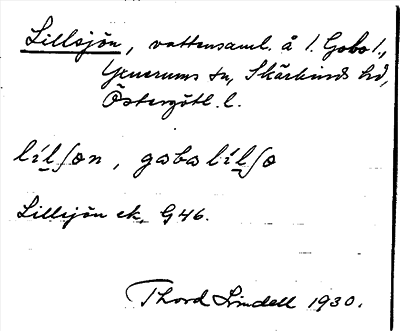 Lillsjön, vattensaml. å l. Gobo l.,
Yxnerums sn, Skärkinds hd,
Östergötl. l.
lílʃɷn, gɷbɷ lílʃɷ
Lillsjön ek. G46.
Thord Lindell 1930.